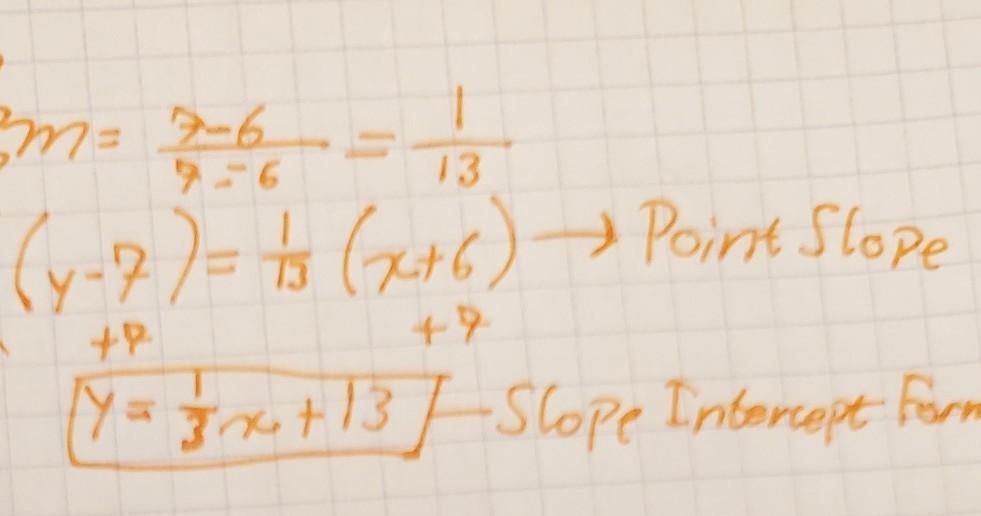 m = 7-6/7--6 = 1/13
(y-7) = 1/13 (x+6) → Point Slope
+7 +7
y = 1/3 x + 13 — Slope Intercept Form